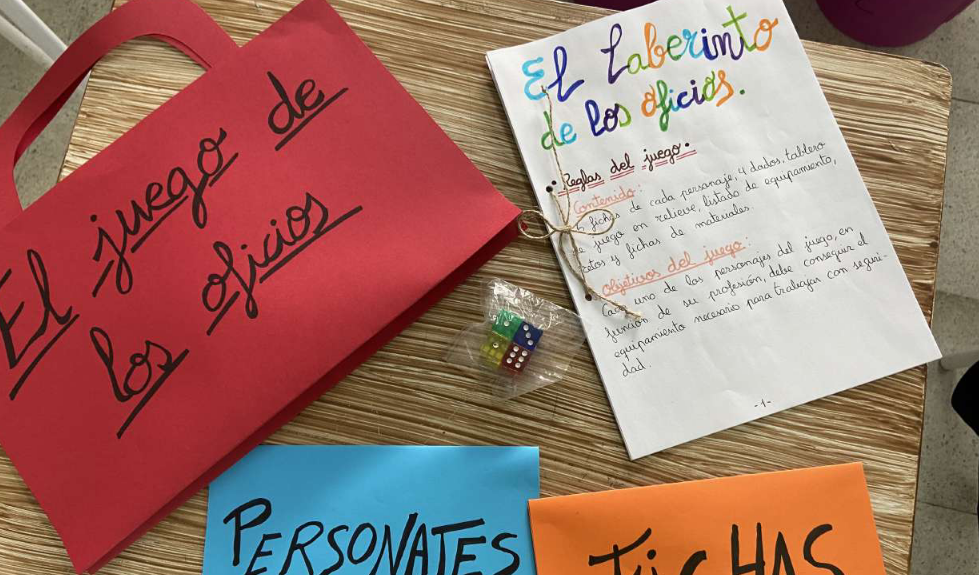 El juego de
los oficios
El Laberinto
de los oficios.
Reglas del juego.
Contenido:
fichas de cada personaje, 4 dados, tablero
de juego en relieve, listado de equipamiento,
retos y fichas de materiales.
Objetivos del juego:
Cada uno de los personajes del juego, en
función de su profesión, debe conseguir el
equipamiento necesario para trabajar con seguri-
dad.
-1-
PERSONATES
FICHAS